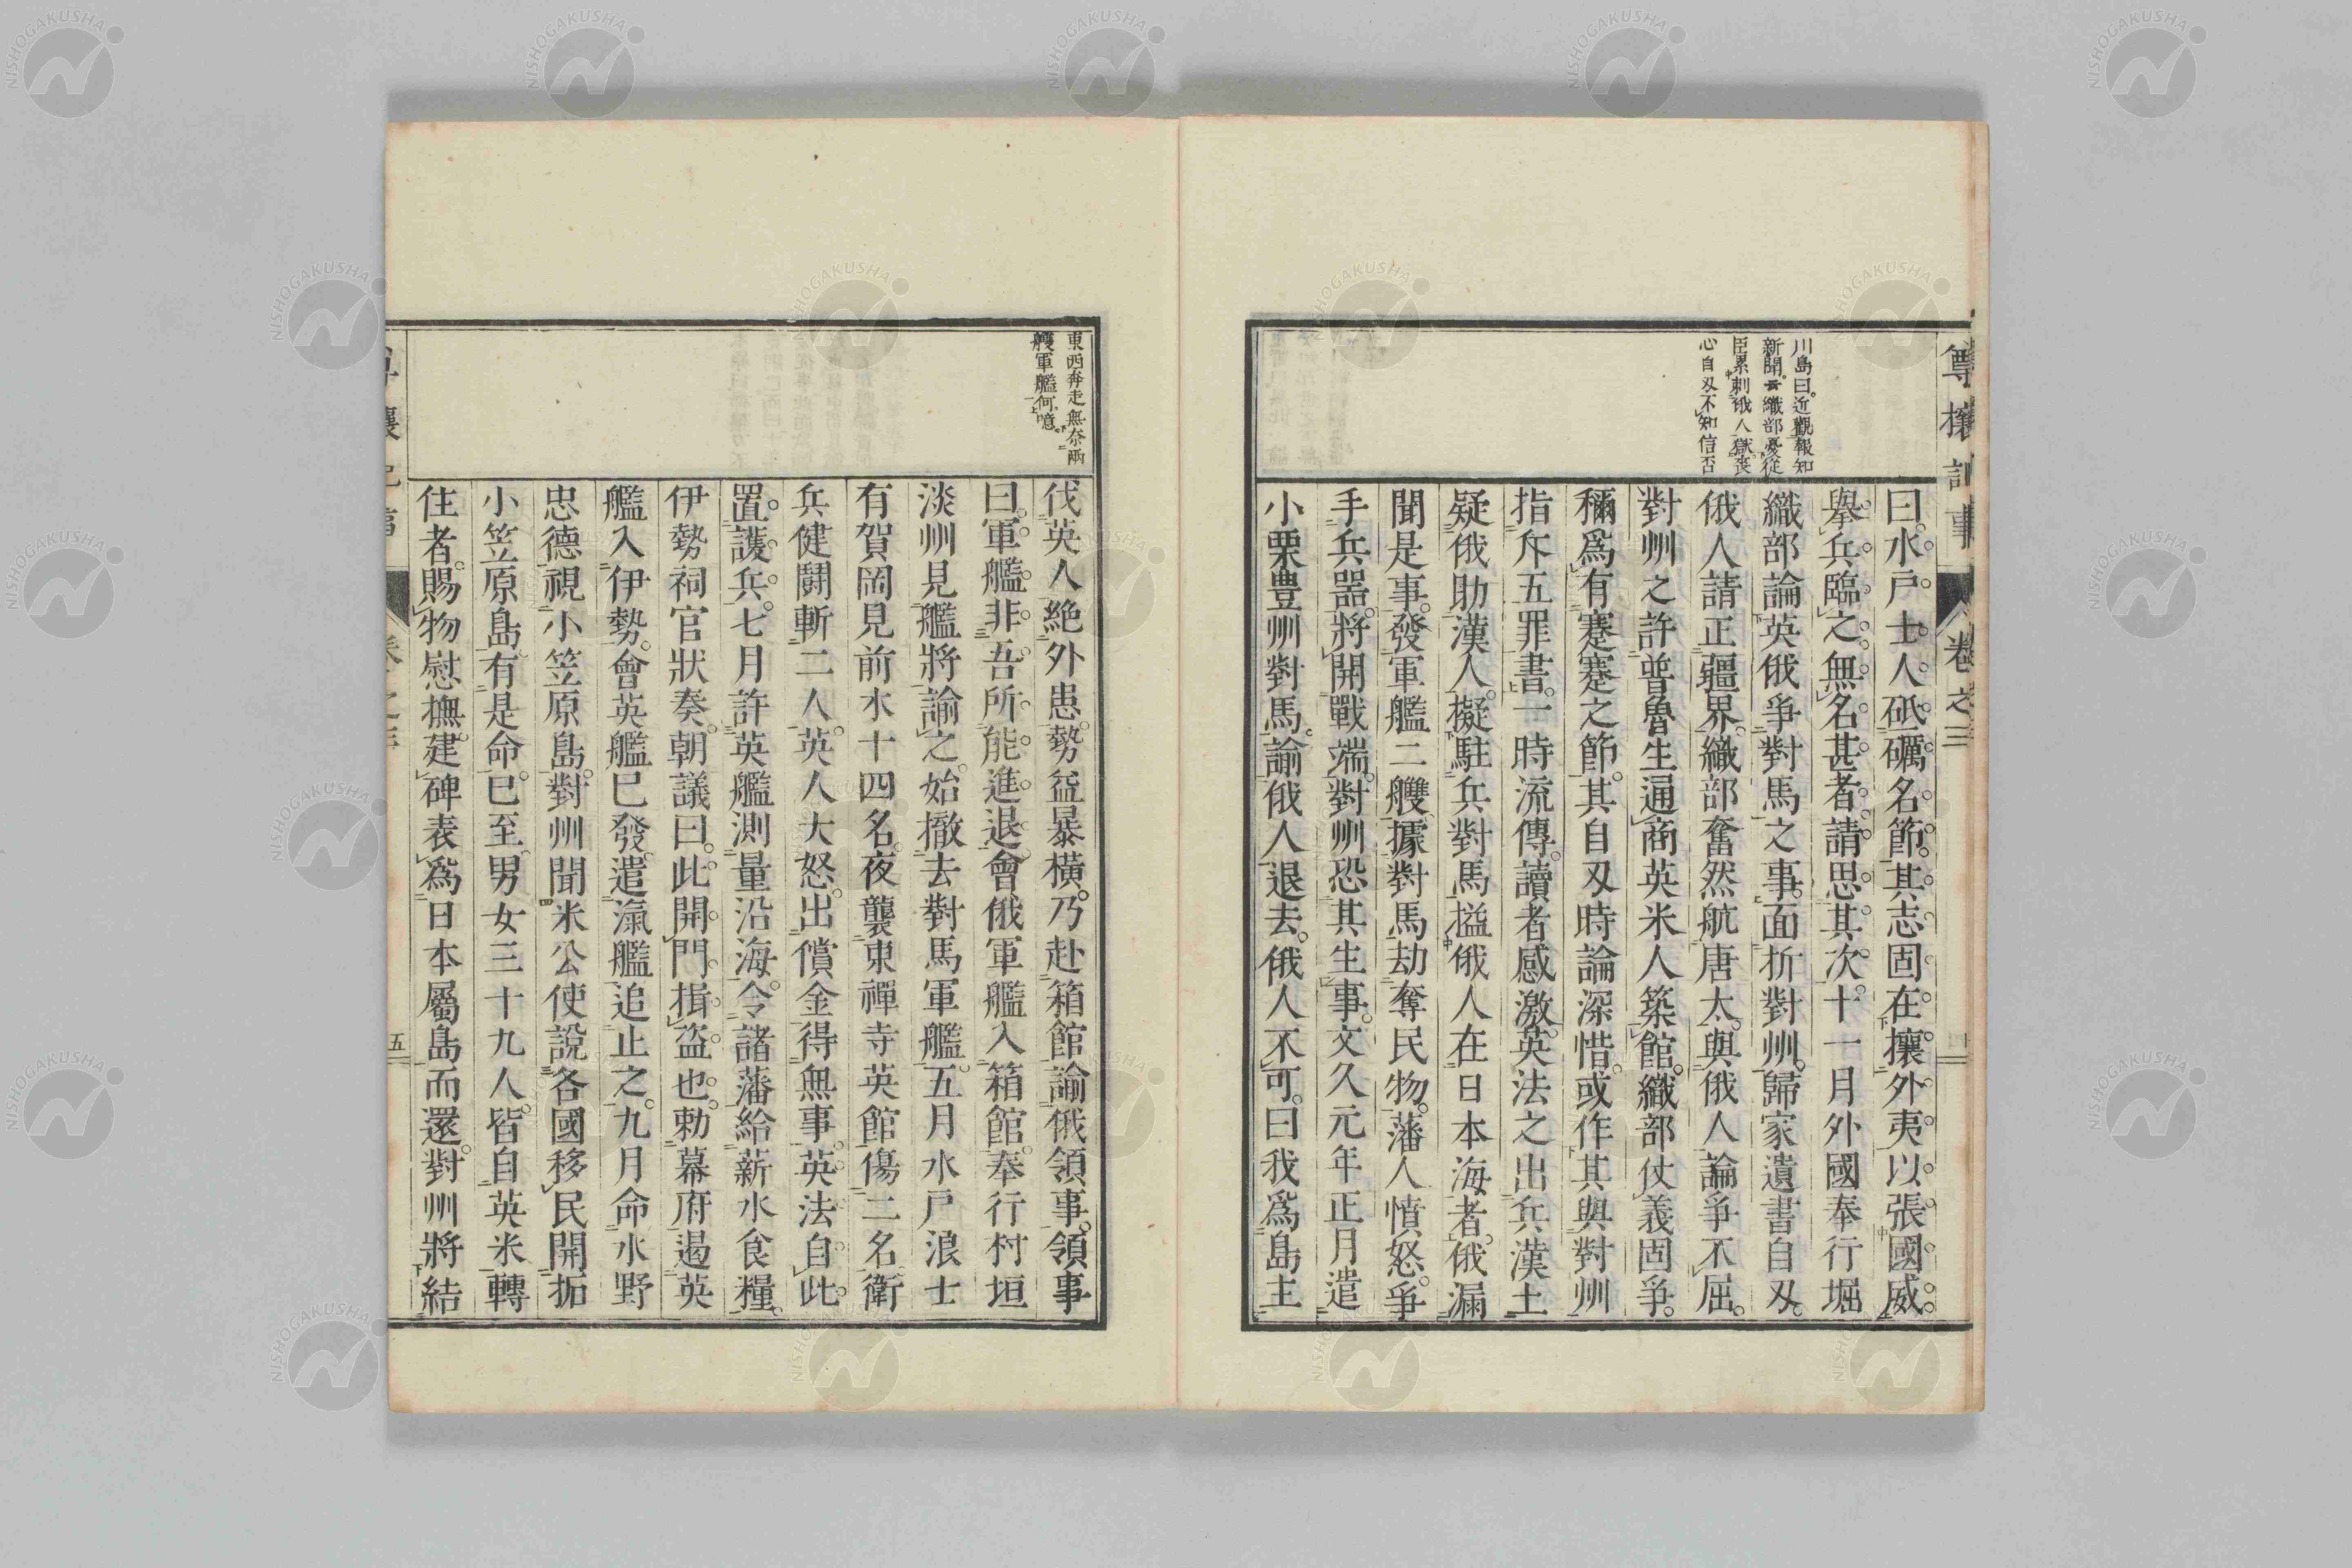 尊攘記事
卷之三
川島曰。近觀報知
新聞。云織部憂從
臣累刺俄人獄。喪
心自刄不知信否
曰。水戶士人砥礪名節。其志固在攘外夷。以張國威。
擧兵臨之。無名甚者。請思其次。十一月外國奉行堀
織部論英俄爭對馬之事。面折對州。歸家遺書自刄。
俄人請正疆界。織部奮然航唐太。與俄人論爭不屈。
對州之許普魯生通商英米人築館。織部仗義固爭。
稱爲有蹇蹇之節。其自刄時論深惜。或作其與對州
指斥五罪書。一時流傳。讀者感激。英法之出兵漢土
疑俄助漢人。擬駐兵對馬搤俄人在日本海者。俄漏
聞是事。發軍艦二艘。據對馬。劫奪民物。藩人憤怒。爭
手兵器。將開戰端。對州恐其生事。文久元年正月遣
小栗豊州對馬。諭俄人退去。俄人不可。曰我爲島主
東西奔走無奈兩
艘軍艦何。噫。
伐英人絕外患。勢益暴橫。乃赴箱館諭俄領事。領事
曰。軍艦非吾所能進退。會俄軍艦入箱館。奉行村垣
淡州見艦將諭之。始撤去對馬軍艦。五月水戶浪士
有賀岡見前木十四名。夜襲東禪寺英館傷二名衛
兵健鬪斬二人。英人大怒。出償金得無事。英法自此
置護兵。七月許英艦測量沿海。令諸藩給薪水食糧。
伊勢祠官狀奏。朝議曰。此開門揖盜也。勅幕府遏英
艦入伊勢。會英艦已發。遣滊艦追止之。九月命水野
忠德視小笠原島。對州聞米公使說各國移民開拓
小笠原島。有是命。已至。男女三十九人。皆自英米轉
住者。賜物慰撫。建碑表爲日本屬島而還。對州將結
五